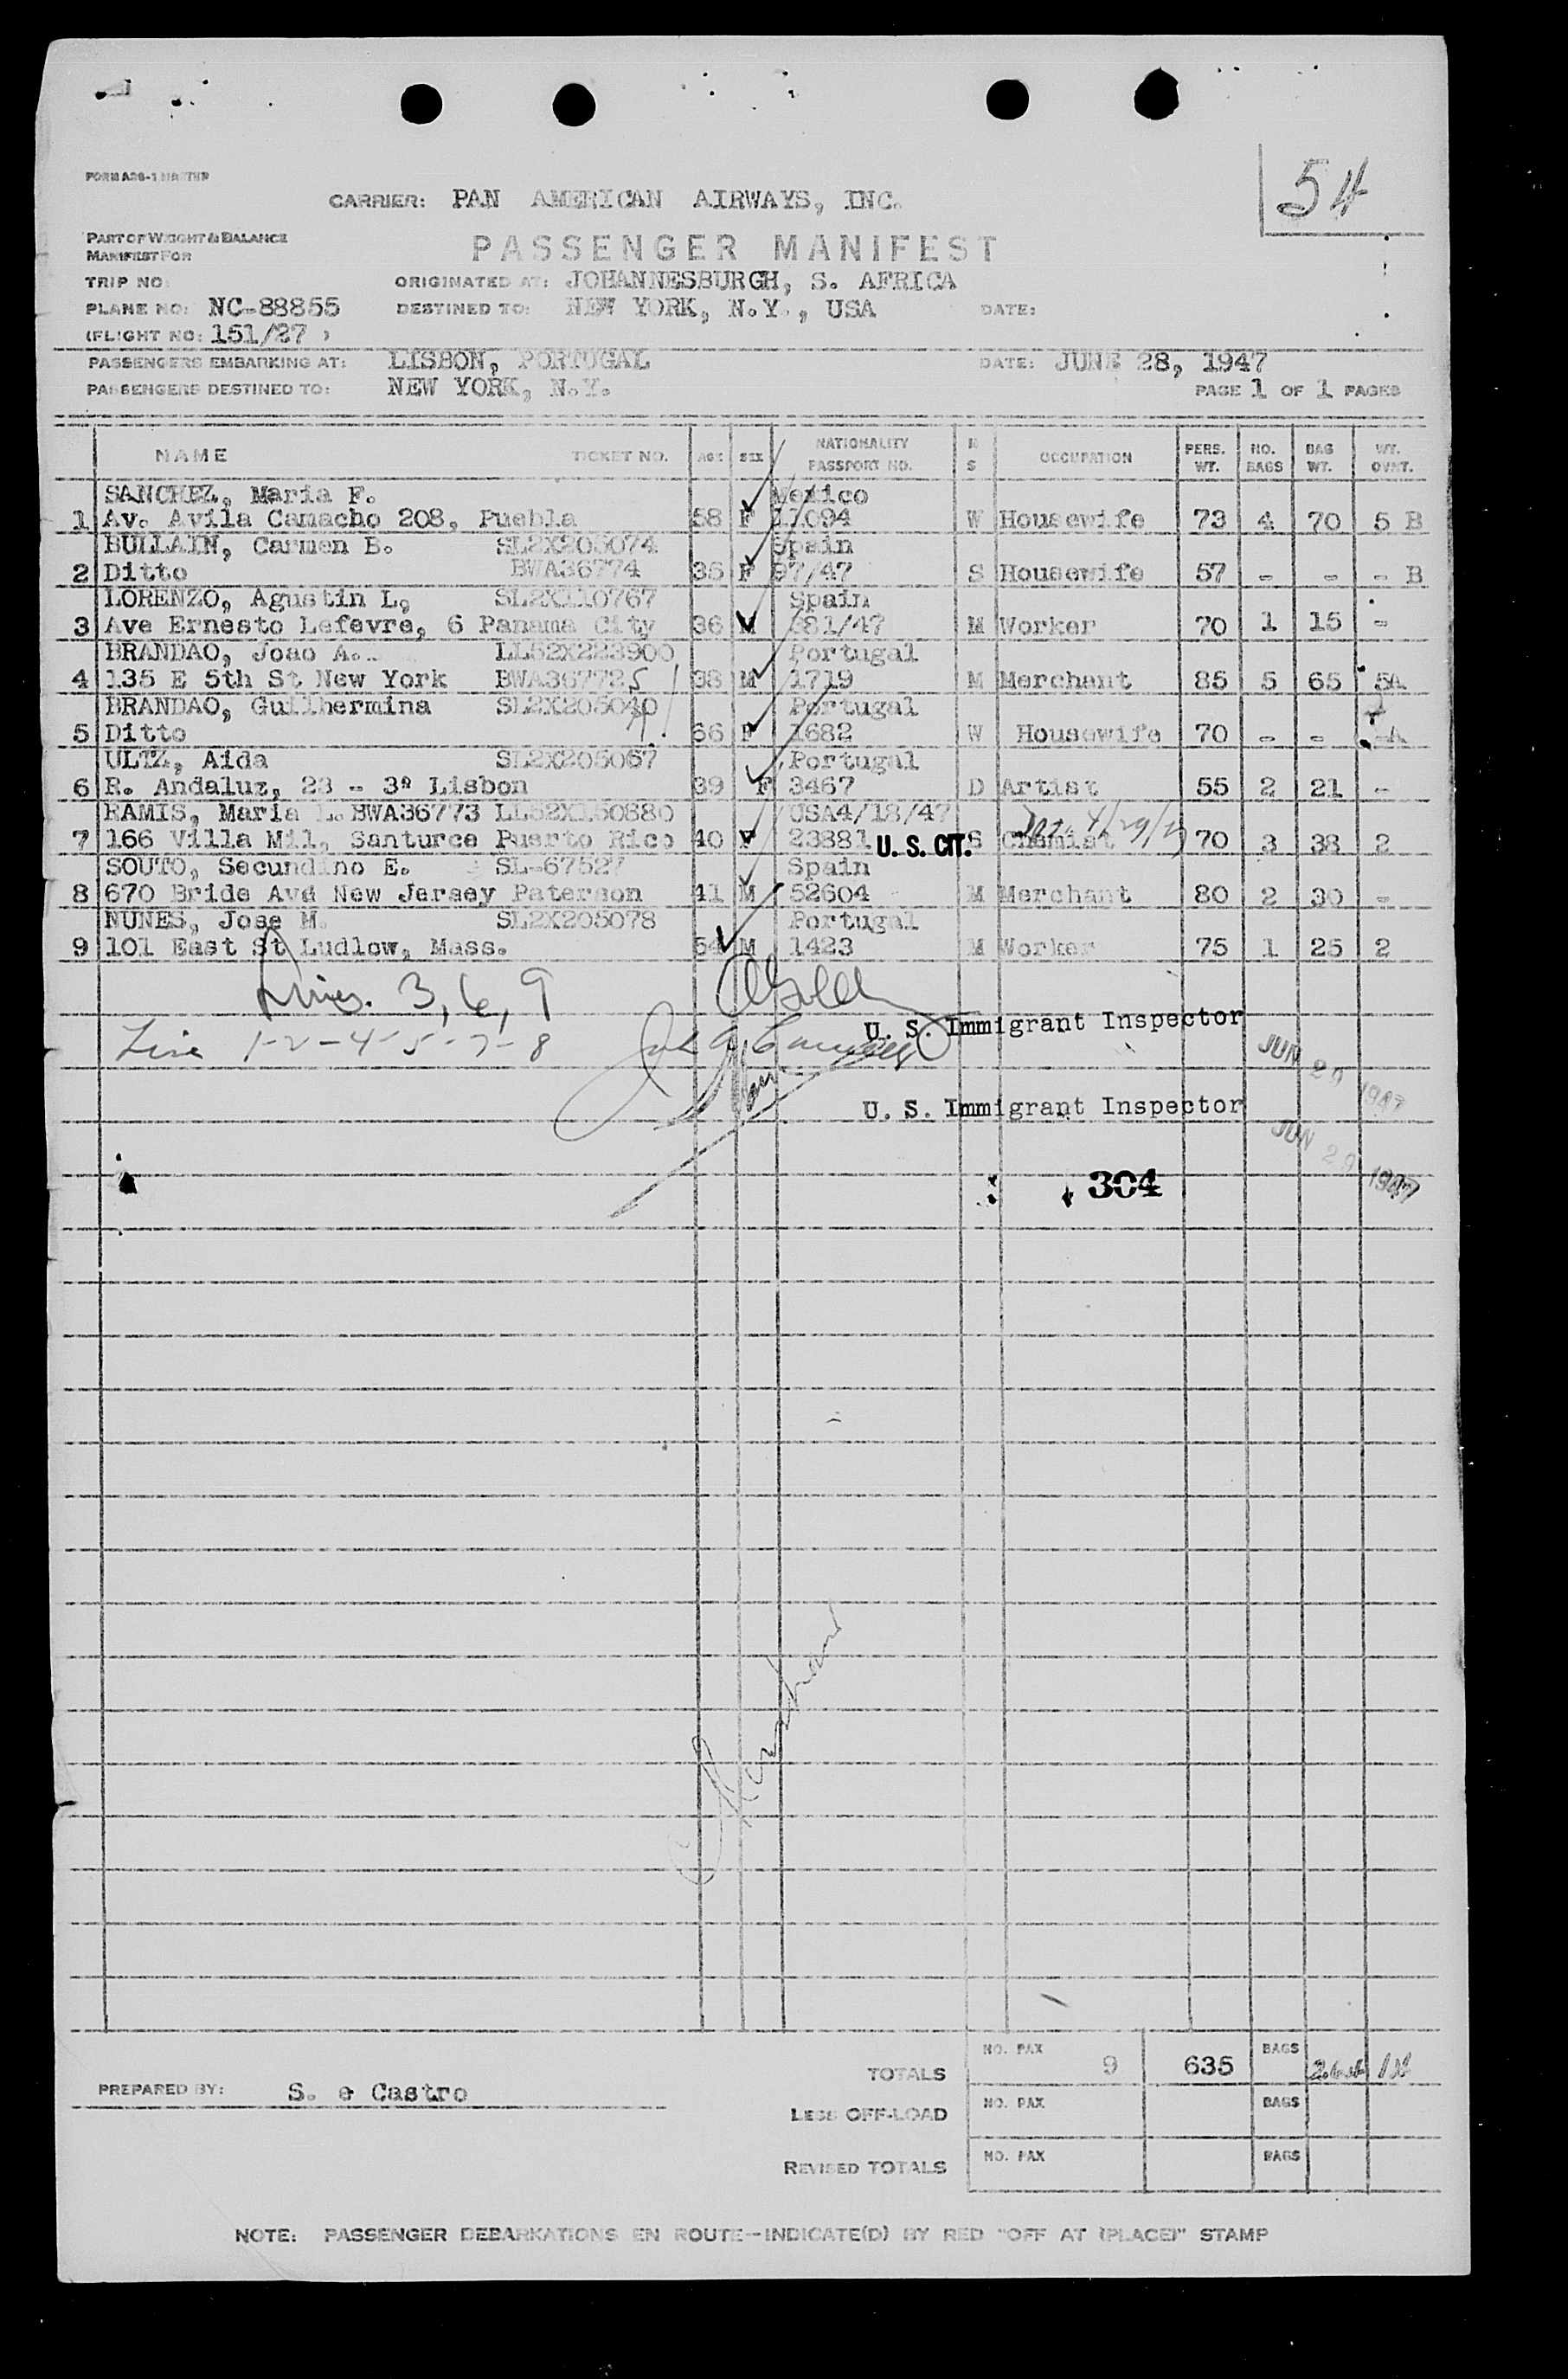 54
CARRIER: PAN AMERICAN AIRWAYS, INC.
PART OF WEIGHT & BALANCE
MANIFEST FOR
PASSENGER MANIFEST
TRIP NO: ORIGINATED AT: JOHANNESBURGH, S. AFRICA
PLANE NO: NC-88855 DESTINED TO: NEW YORK, N.Y., USA DATE:
(FLIGHT NO: 151/27 )
PASSENGERS EMBARKING AT: LISBON, PORTUGAL DATE: JUNE 28, 1947
PASSENGERS DESTINED TO: NEW YORK, N.Y. PAGE 1 OF 1 PAGES
NAME TICKET NO. AGE SEX NATIONALITY PASSPORT NO. M S OCCUPATION PERS. WT. NO. BAGS BAG WT. WT. OVWT.
SANCHEZ, Maria F. Mexico
1 Av. Avila Camacho 208, Puebla 58 F 17094 W Housewife 73 4 70 5 B
BULLAIN, Carmen B. SL2X205074 Spain
2 Ditto BWA36774 35 F 97/47 S Housewife 57 - - - B
LORENZO, Agustin L, SL2X110767 Spain
3 Ave Ernesto Lefevre, 6 Panama City 36 M 381/47 M Worker 70 1 15 -
BRANDAO, Joao A. LL52X223900 Portugal
4 135 E 5th St New York BWA36772 5 38 M 1719 M Merchant 85 5 65 5A
BRANDAO, Guilhermina SL2X205040 Portugal
5 Ditto 66 F 1682 W Housewife 70 - - -A
ULTZ, Aida SL2X205067 Portugal
6 R. Andaluz, 23 - 3º Lisbon 39 F 3467 D Artist 55 2 21 -
RAMIS, Maria L. BWA36773 LL52X150880 USA4/18/47
7 166 Villa Mil, Santurce Puerto Rico 40 F 23881 U. S. CIT. S Chemist 4/29/47 70 3 38 2
SOUTO, Secundino E. SL-67527 Spain
8 670 Bride Ave New Jersey Paterson 41 M 52604 M Merchant 80 2 30 -
NUNES, Jose M. SL2X205078 Portugal
9 101 East St Ludlow, Mass. 54 M 1423 M Worker 75 1 25 2
Lines. 3, 6, 9
U. S. Immigrant Inspector
Line 1-2-4-5-7-8
JUN 29 1947
U. S. Immigrant Inspector
JUN 29 1947
304
TOTALS NO. PAX 9 635 BAGS 264 14
PREPARED BY: S. e Castro
LESS OFF-LOAD NO. PAX BAGS
REVISED TOTALS NO. PAX BAGS
NOTE: PASSENGER DEBARKATIONS EN ROUTE--INDICATE(D) BY RED "OFF AT (PLACE)" STAMP